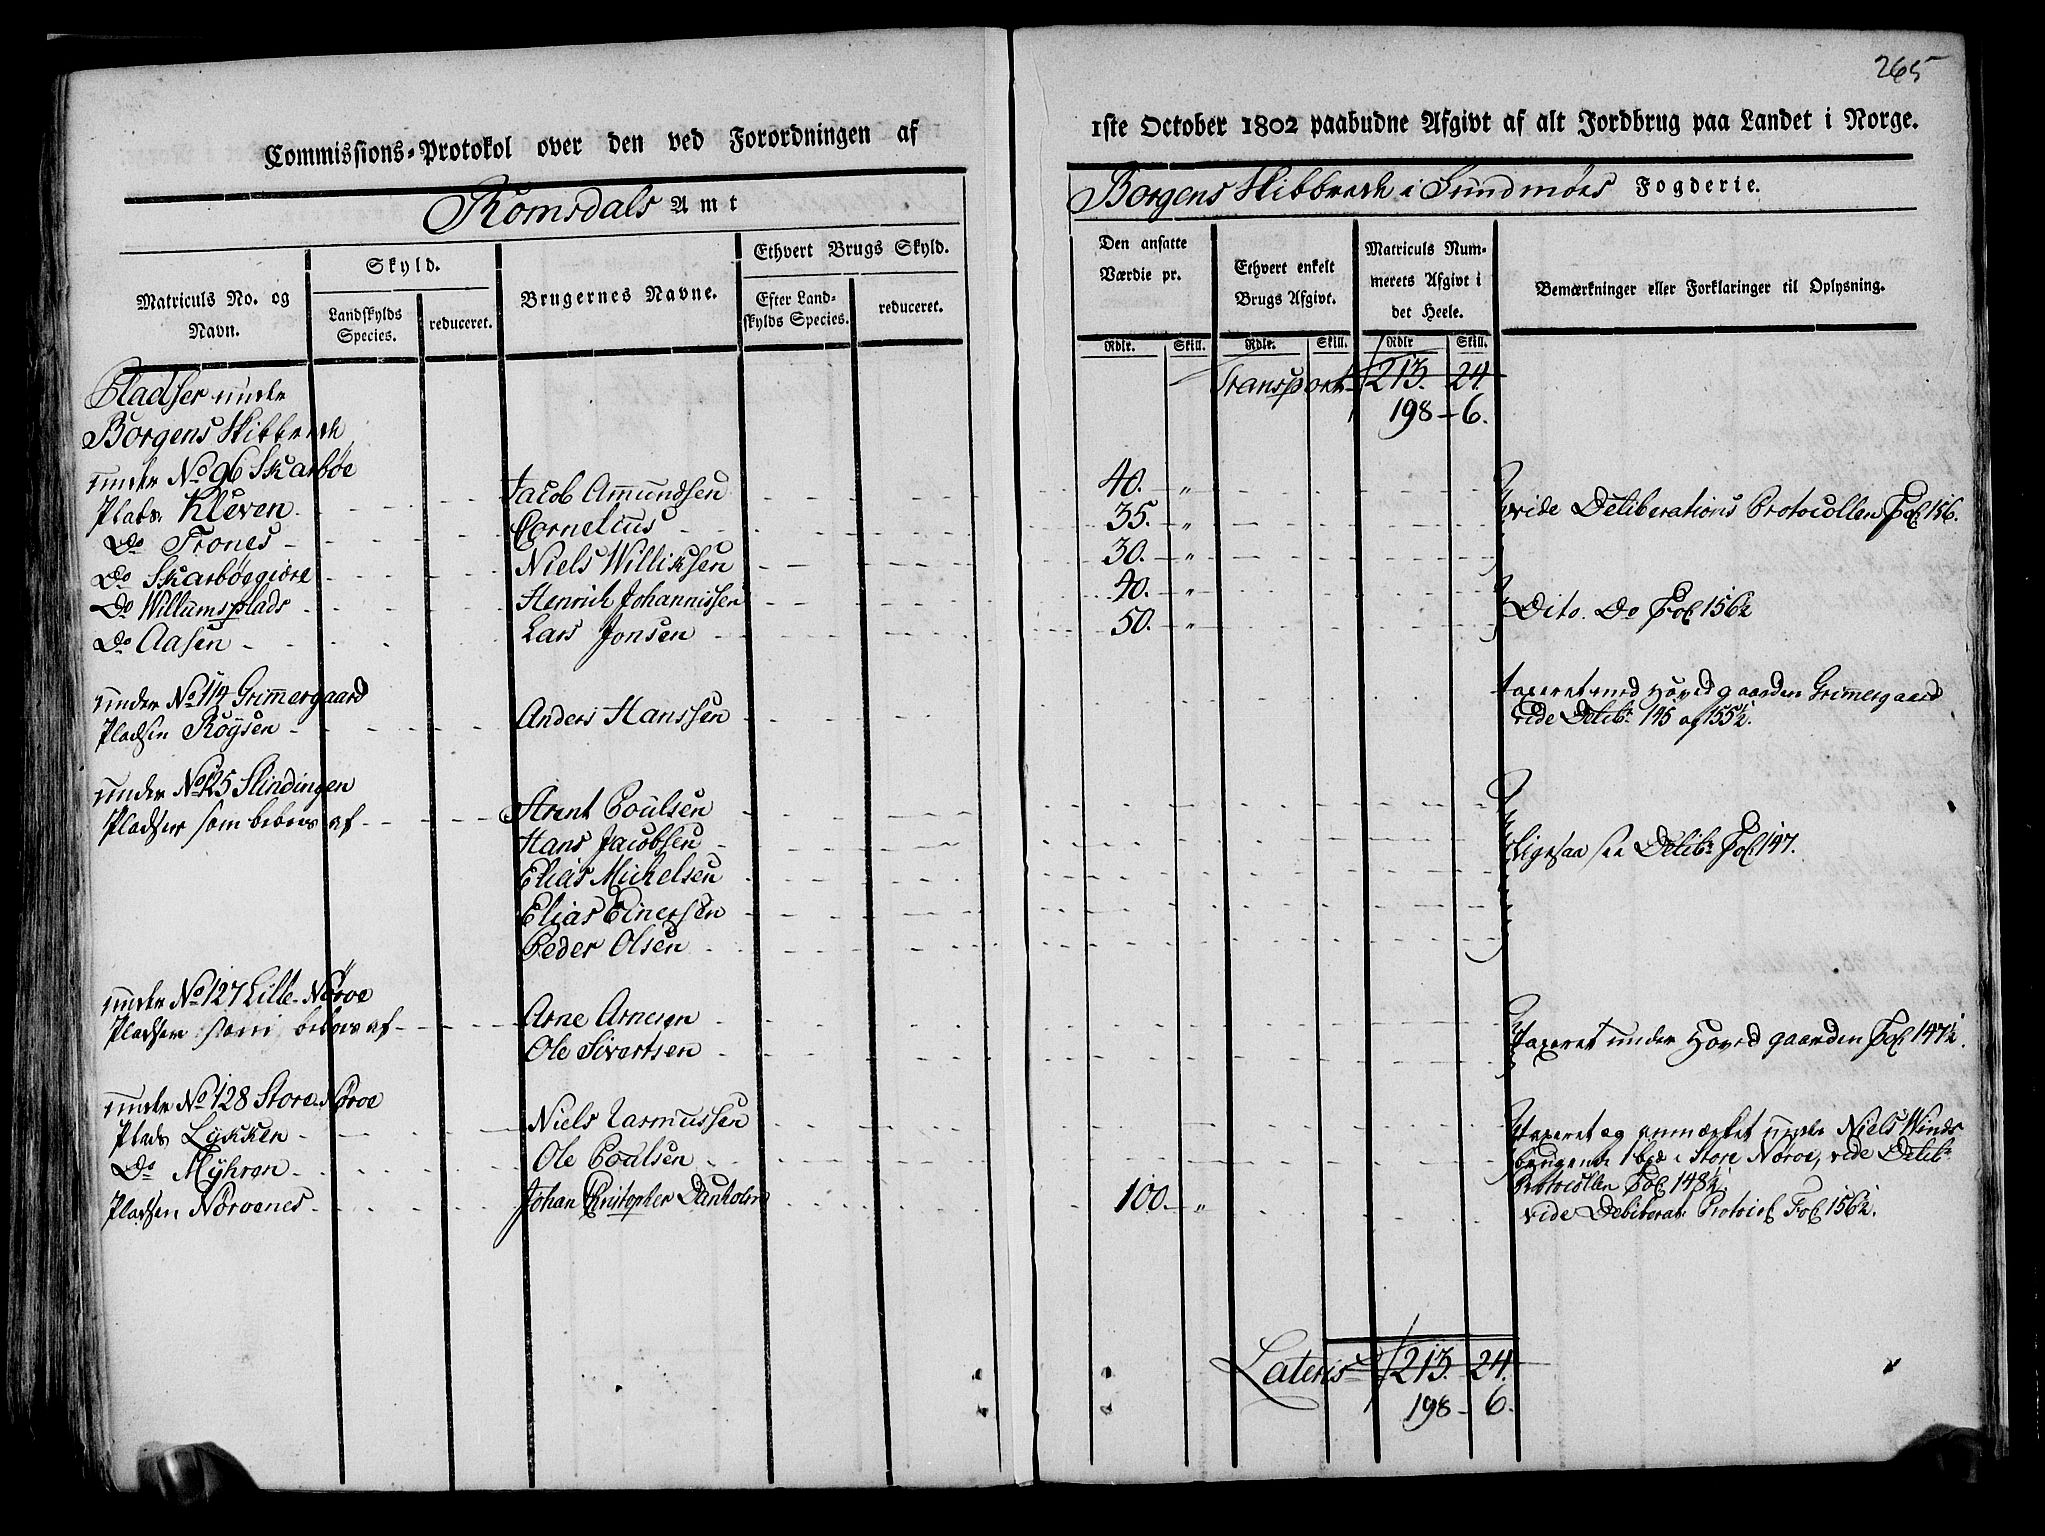 265
Commissions-Protokol over den ved Forordningen af
1ste October 1802 paabudne Afgivt af alt Jordbrug paa Landet i Norge.
Romsdals Amt
Borgens Skibbrede i Sundmöes Fogderie.
Matriculs No. og Navn.
Skyld.
Landskylds Species.
reduceret.
Brugernes Navne.
Ethvert Brugs Skyld.
Efter Landskylds Species.
reduceret.
Den ansatte Værdie pr.
Rdlr. Skill.
Ethvert enkelt Brugs Afgivt.
Rdlr. Skill.
Matriculs Nummerets Afgivt i det Heele.
Rdlr Skill.
Bemærkninger eller Forklaringer til Oplysning.
Pladser under Transport 213. 24
Borgens Skibbrede 198 - 6.
under No 96 Skarbøe
Plads Kleven Jacob Amundsen 40. - "
Do Trones Cornelius 35. - " vide Deliberations Protocollen Fol 156.
Do Skarbøegiøre Niels Williksen 30. - "
Do Willumsplads Henrich Johannissen 40. - "
Do Aasen Lars Jonsen 50. - " Dito. Do Fol 156½
under No 114 Grimmergaard taxeret med Hovedgaarden Grimergaard
Pladsen Röysen Anders Hanssen vide Delibr 145 af 155½.
under No 125 Slindingen
Pladser som beboes af Arent Poulsen
Hans Jacobsen ligesaa see Delibr Fol 147.
Elias Michelsen
Elias Einersen
Peder Olsen
under No 127 Lille-Nøroe
Pladsen som beboes af Arne Arnesen taxeret under Hovedgaarden Fol 147½.
Ole Sivertsen
under No 128 Store Nøroe
Plads Lykken Niels Rasmussen taxeret og anmærket under Niels Winds
Do Myhren Ole Poulsen brugende i Store Noroe, vide Delibr
Protocollen Fol 148½
Pladsen Nørvenes Johan Christopher Danholm 100. - " vide Deliberat: Protocol Fol 156½.
Lateris 213. 24.
198 - 6.